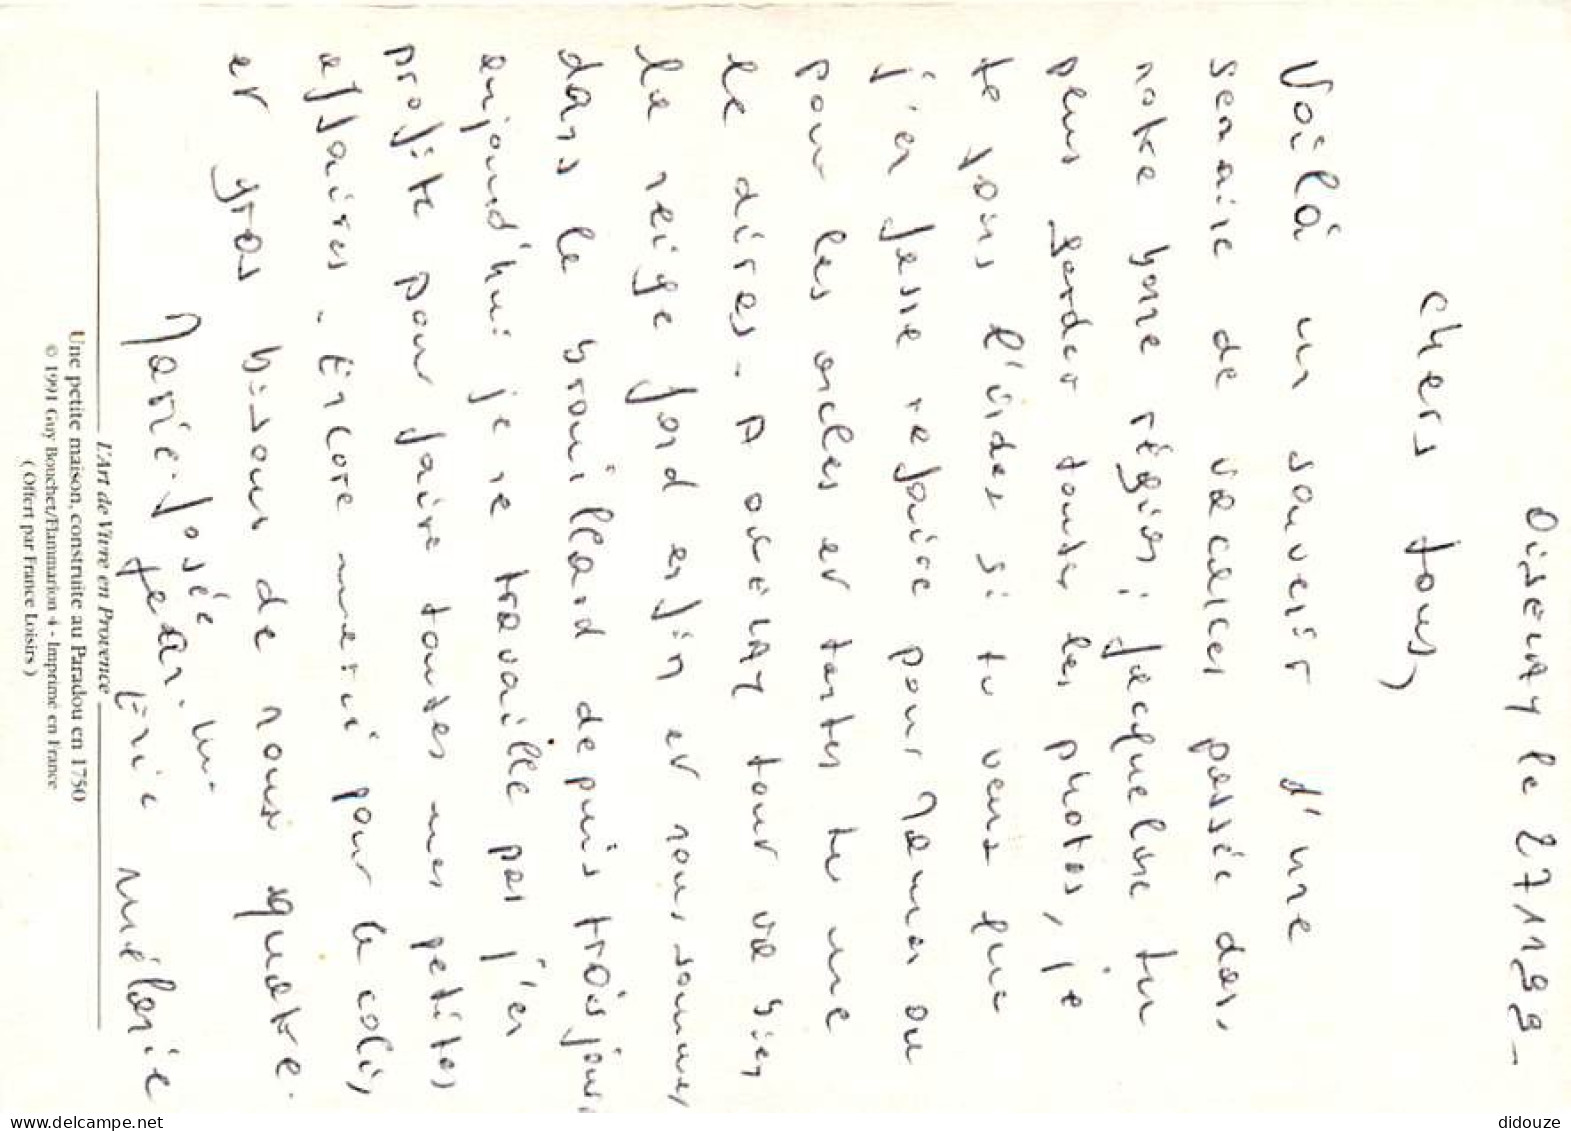 Diséuay le 27 1 1999 -
Chers tous,
Voilà un souvenir d'une
semaine de vacances passée dans
notre bonne région ; Jacqueline tu
peux garder toutes les photos, je
te fous l'index si tu veux que
j'en fasse refaire pour Maman ou
pour les oncles et tantes tu me
le dires - A tout va bien
la neige fond enfin et nous sommes
dans le brouillard depuis trois jours,
aujourd'hui je ne travaille pas j'en
profite pour faire toutes mes petites
affaires - Encore merci pour le colis,
et gros bisous de nous quatre.
Marie-José Jean-
Eric Mélanie
L'Art de Vivre en Provence
Une petite maison, construite au Paradou en 1750
© 1991 Guy Bouchet/Flammarion 4 - Imprimé en France
( Offert par France Loisirs )
www.delcampe.net
didouze